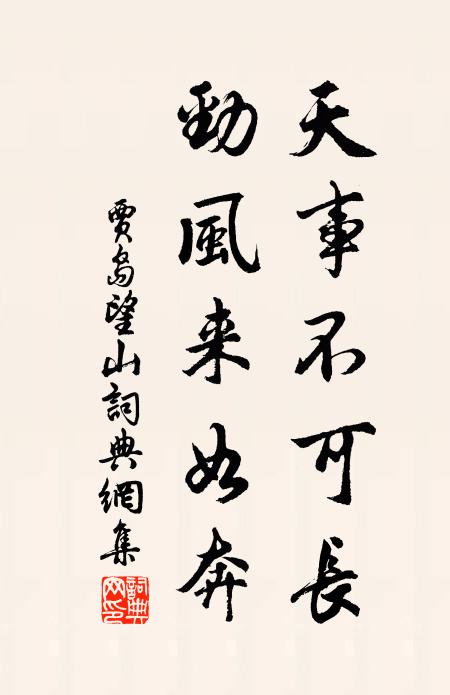 天事不可長
勁風来如奔
賈島望山詞典網集
詞典网印